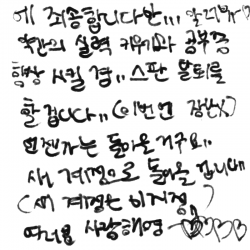 에 죄송합니다만,,,
약간의 실력 키우기와 공부 좀
향상 시킬 겸,, 스판 분퇴를
할 겁니다,, (이번엔 장난X)
언젠가는 돌아올거구요,
새 계정으로 돌아올겁니다
(새 계정은 비지정)
여러분 사랑해영